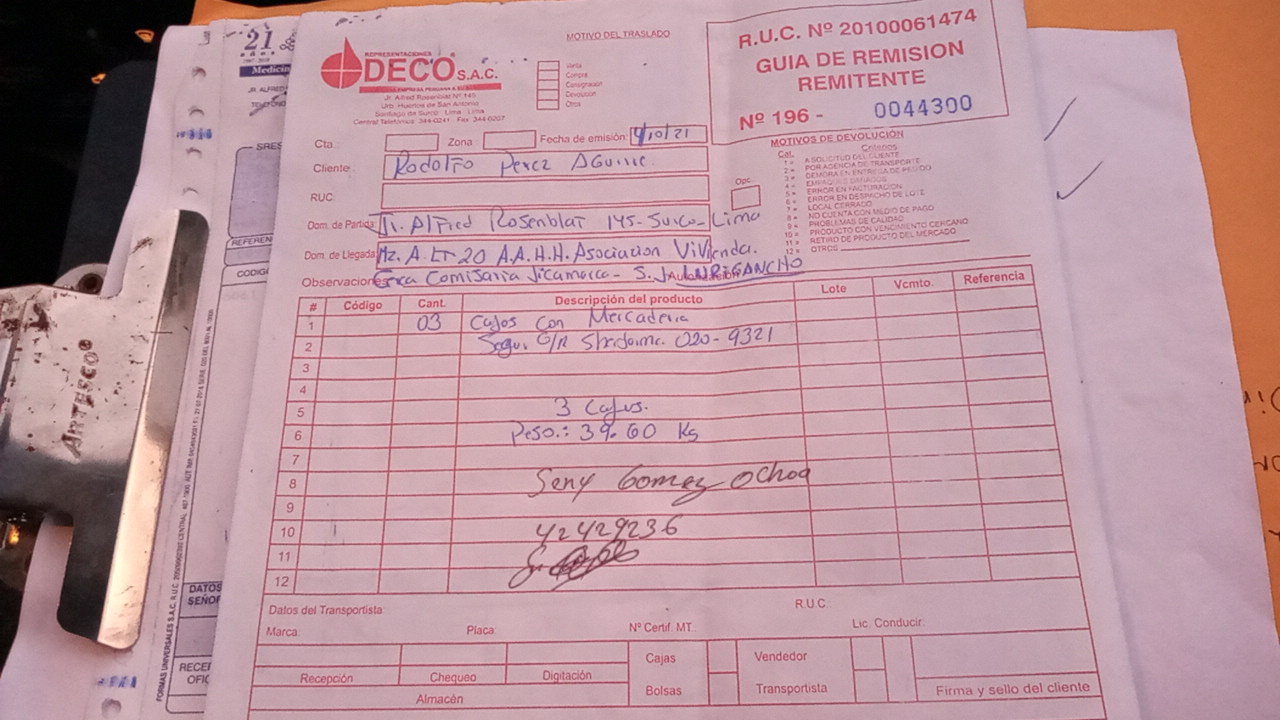 21
AÑOS
Medicin
JR. ALFRED
TELEFONO
SRES
REFEREN
CODIGO
ARTESCO®
REPRESENTACIONES
DECO S.A.C.
Jr. Alfred Rosenblat Nº 145
Urb. Huertos de San Antonio
Santiago de Surco - Lima - Lima
Central Telefónica: 344-0241 Fax 344-0207
MOTIVO DEL TRASLADO
Venta
Compra
Consignación
Devolución
Otros
R.U.C. Nº 20100061474
GUIA DE REMISION
REMITENTE
Nº 196 - 0044300
Cta. Zona Fecha de emisión: 4/10/21
Cliente Rodolfo Perez Aguirre
RUC
Dom. de Partida: Jr. Alfred Rosenblat 145- Surco- Lima
Dom. de Llegada: Mz. A. LT-20 A.A.H.H. Asociacion Vivienda.
Observaciones Comisaria Jicamarca- S. J. LURIGANCHO
Opc.
MOTIVOS DE DEVOLUCIÓN
Cat. Criterios
1 = A SOLICITUD DEL CLIENTE
2 = POR AGENCIA DE TRANSPORTE
3 = DEMORA EN ENTREGA DE PEDIDO
4 = EMPAQUES DAÑADOS
5 = ERROR EN FACTURACION
6 = ERROR EN DESPACHO DE LOTE
7 = LOCAL CERRADO
8 = NO CUENTA CON MEDIO DE PAGO
9 = PROBLEMAS DE CALIDAD
10 = PRODUCTO CON VENCIMIENTO CERCANO
11 = RETIRO DE PRODUCTO DEL MERCADO
12 = OTROS
# Código Cant. Descripción del producto Lote Vcmto. Referencia
1 03 Cajas con Mercaderia
2 Segu. G/R 020-9321
3
4
5 3 Cajas.
6 Peso.: 39.60 Kg
7
8 Seny Gomez Ochoa
9
10 42429236
11
12
Datos del Transportista: R.U.C.
Marca: Placa: Nº Certif. MT.: Lic. Conducir:
Recepción Chequeo Digitación
Almacén
Cajas
Bolsas
Vendedor
Transportista
Firma y sello del cliente
DATOS
SEÑOR
RECEI
OFIC